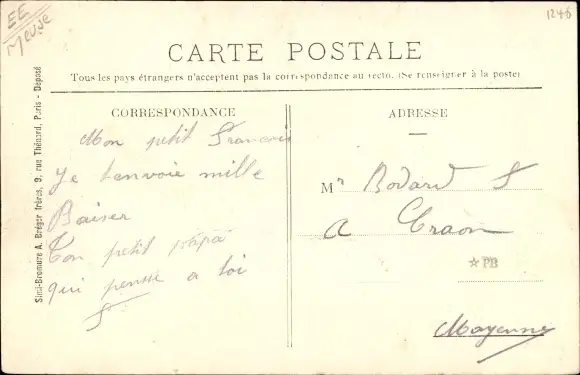 EE
Meuse
1246
CARTE POSTALE
Tous les pays étrangers n'acceptent pas la correspondance au recto. (Se renseigner à la poste)
CORRESPONDANCE
Mon petit Francois
Je t'envoie mille
Baiser
Ton petit papa
qui pense a toi
F
ADRESSE
Mr Bodard F
a Craon
☆PB
Mayenne
Simi-Bromure A. Bréger frères, 9, rue Thénard, Paris - Déposé